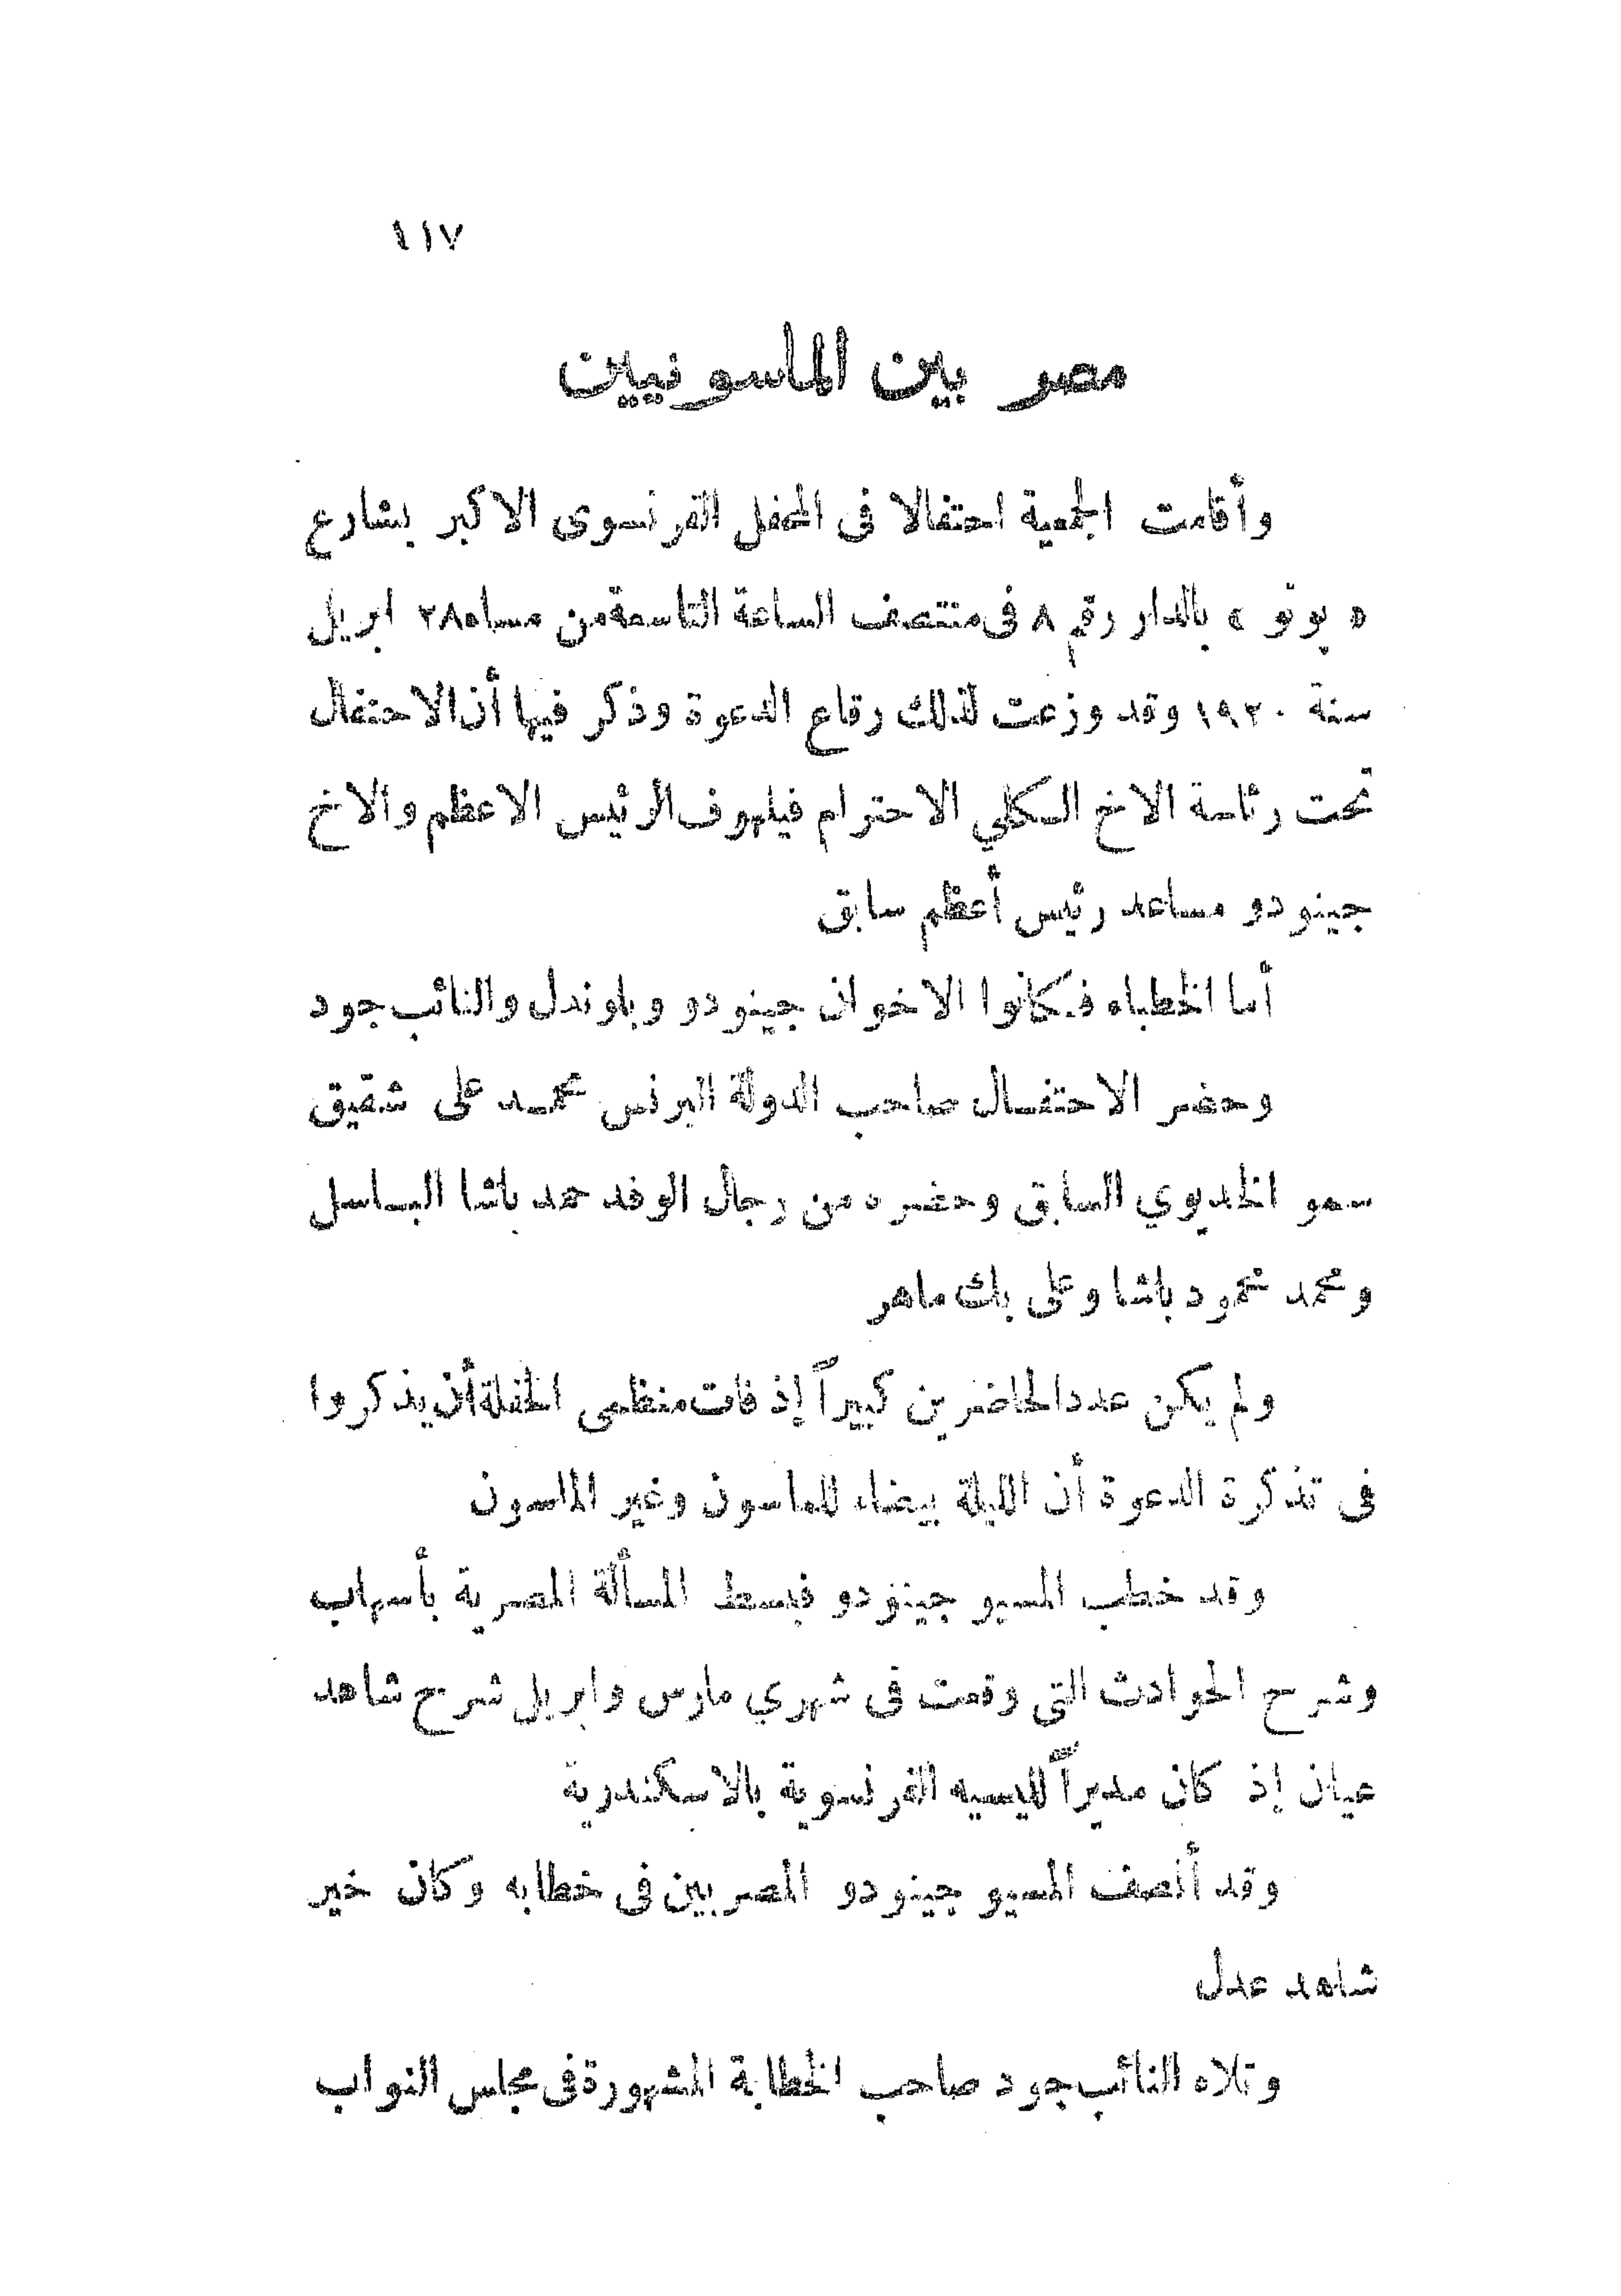 ١١٧
مصر بين الماسونيين
وأقامت الجمعية احتفالا فى المحفل الفرنسوى الاكبر بشارع
« بوتو » بالدار رقم ٨ فى منتصف الساعة التاسعة من مساء ٢٨ ابريل
سنة ١٩٢٠ وقد وزعت لذلك رقاع الدعوة وذكر فيها أن الاحتفال
تحت رئاسة الاخ الكلي الاحترام فيلهوف الرئيس الاعظم والاخ
جينودو مساعد رئيس أعظم سابق
أما الخطباء فكانوا الاخوان جينودو وبلوندل والنائب جود
وحضر الاحتفال صاحب الدولة البرنس محمد على شقيق
سمو الخديوي السابق وحضره من رجال الوفد حمد باشا الباسل
ومحمد محمود باشا وعلى بك ماهر
ولم يكن عدد الحاضرين كبيراً إذ فات منظمى الحفلة أن يذكروا
فى تذكرة الدعوة أن الليلة بيضاء للماسون وغير الماسون
وقد خطب المسيو جينودو فبسط المسألة المصرية بأسهاب
وشرح الحوادث التى وقعت فى شهري مارس وابريل شرح شاهد
عيان إذ كان مديراً لليسيه الفرنسوية بالاسكندرية
وقد أنصف المسيو جينودو المصريين فى خطابه وكان خير
شاهد عدل
وتلاه النائب جود صاحب الخطابة المشهورة فى مجلس النواب